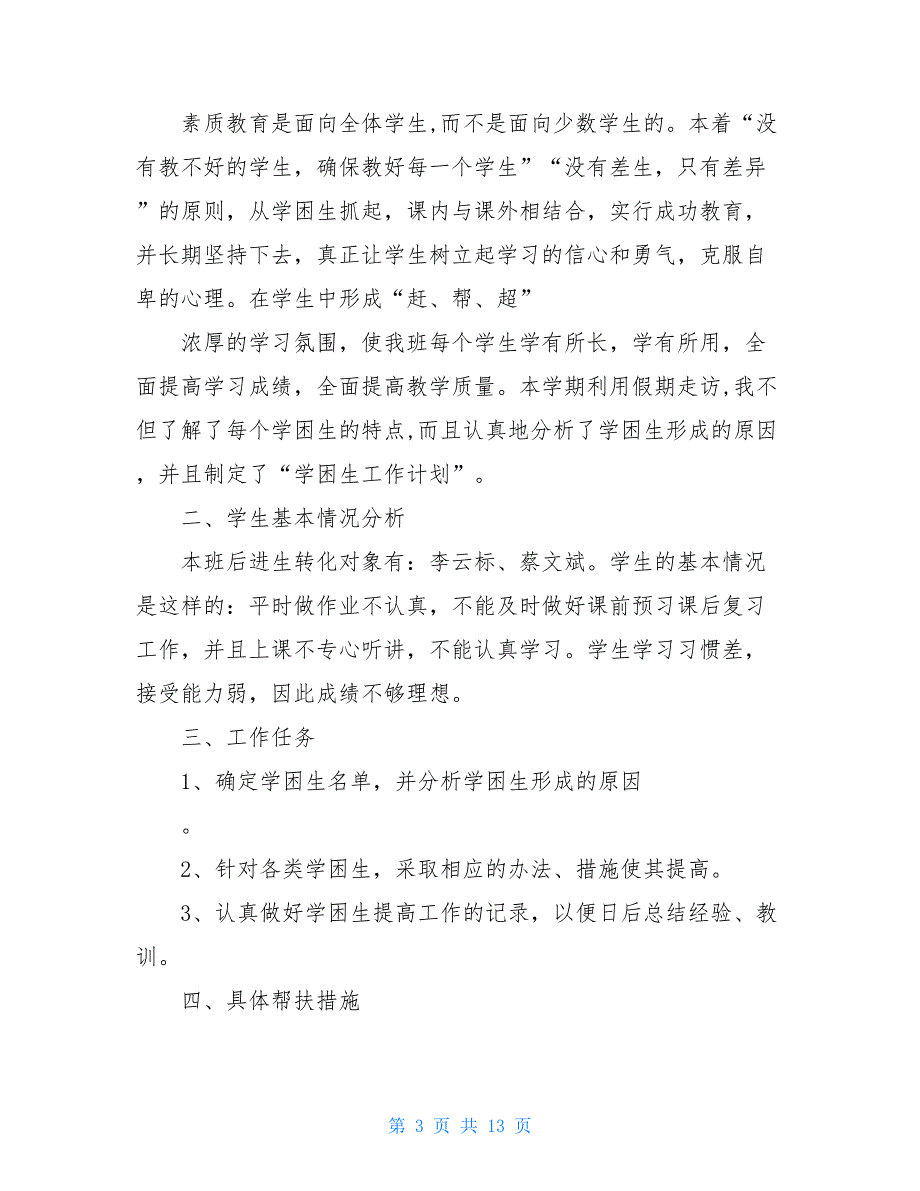 素质教育是面向全体学生,而不是面向少数学生的。本着“没
有教不好的学生，确保教好每一个学生”“没有差生，只有差异
”的原则，从学困生抓起，课内与课外相结合，实行成功教育，
并长期坚持下去，真正让学生树立起学习的信心和勇气，克服自
卑的心理。在学生中形成“赶、帮、超”
浓厚的学习氛围，使我班每个学生学有所长，学有所用，全
面提高学习成绩，全面提高教学质量。本学期利用假期走访,我不
但了解了每个学困生的特点,而且认真地分析了学困生形成的原因
，并且制定了“学困生工作计划”。
二、学生基本情况分析
本班后进生转化对象有：李云标、蔡文斌。学生的基本情况
是这样的：平时做作业不认真，不能及时做好课前预习课后复习
工作，并且上课不专心听讲，不能认真学习。学生学习习惯差，
接受能力弱，因此成绩不够理想。
三、工作任务
1、确定学困生名单，并分析学困生形成的原因
。
2、针对各类学困生，采取相应的办法、措施使其提高。
3、认真做好学困生提高工作的记录，以便日后总结经验、教
训。
四、具体帮扶措施
第 3 页 共 13 页